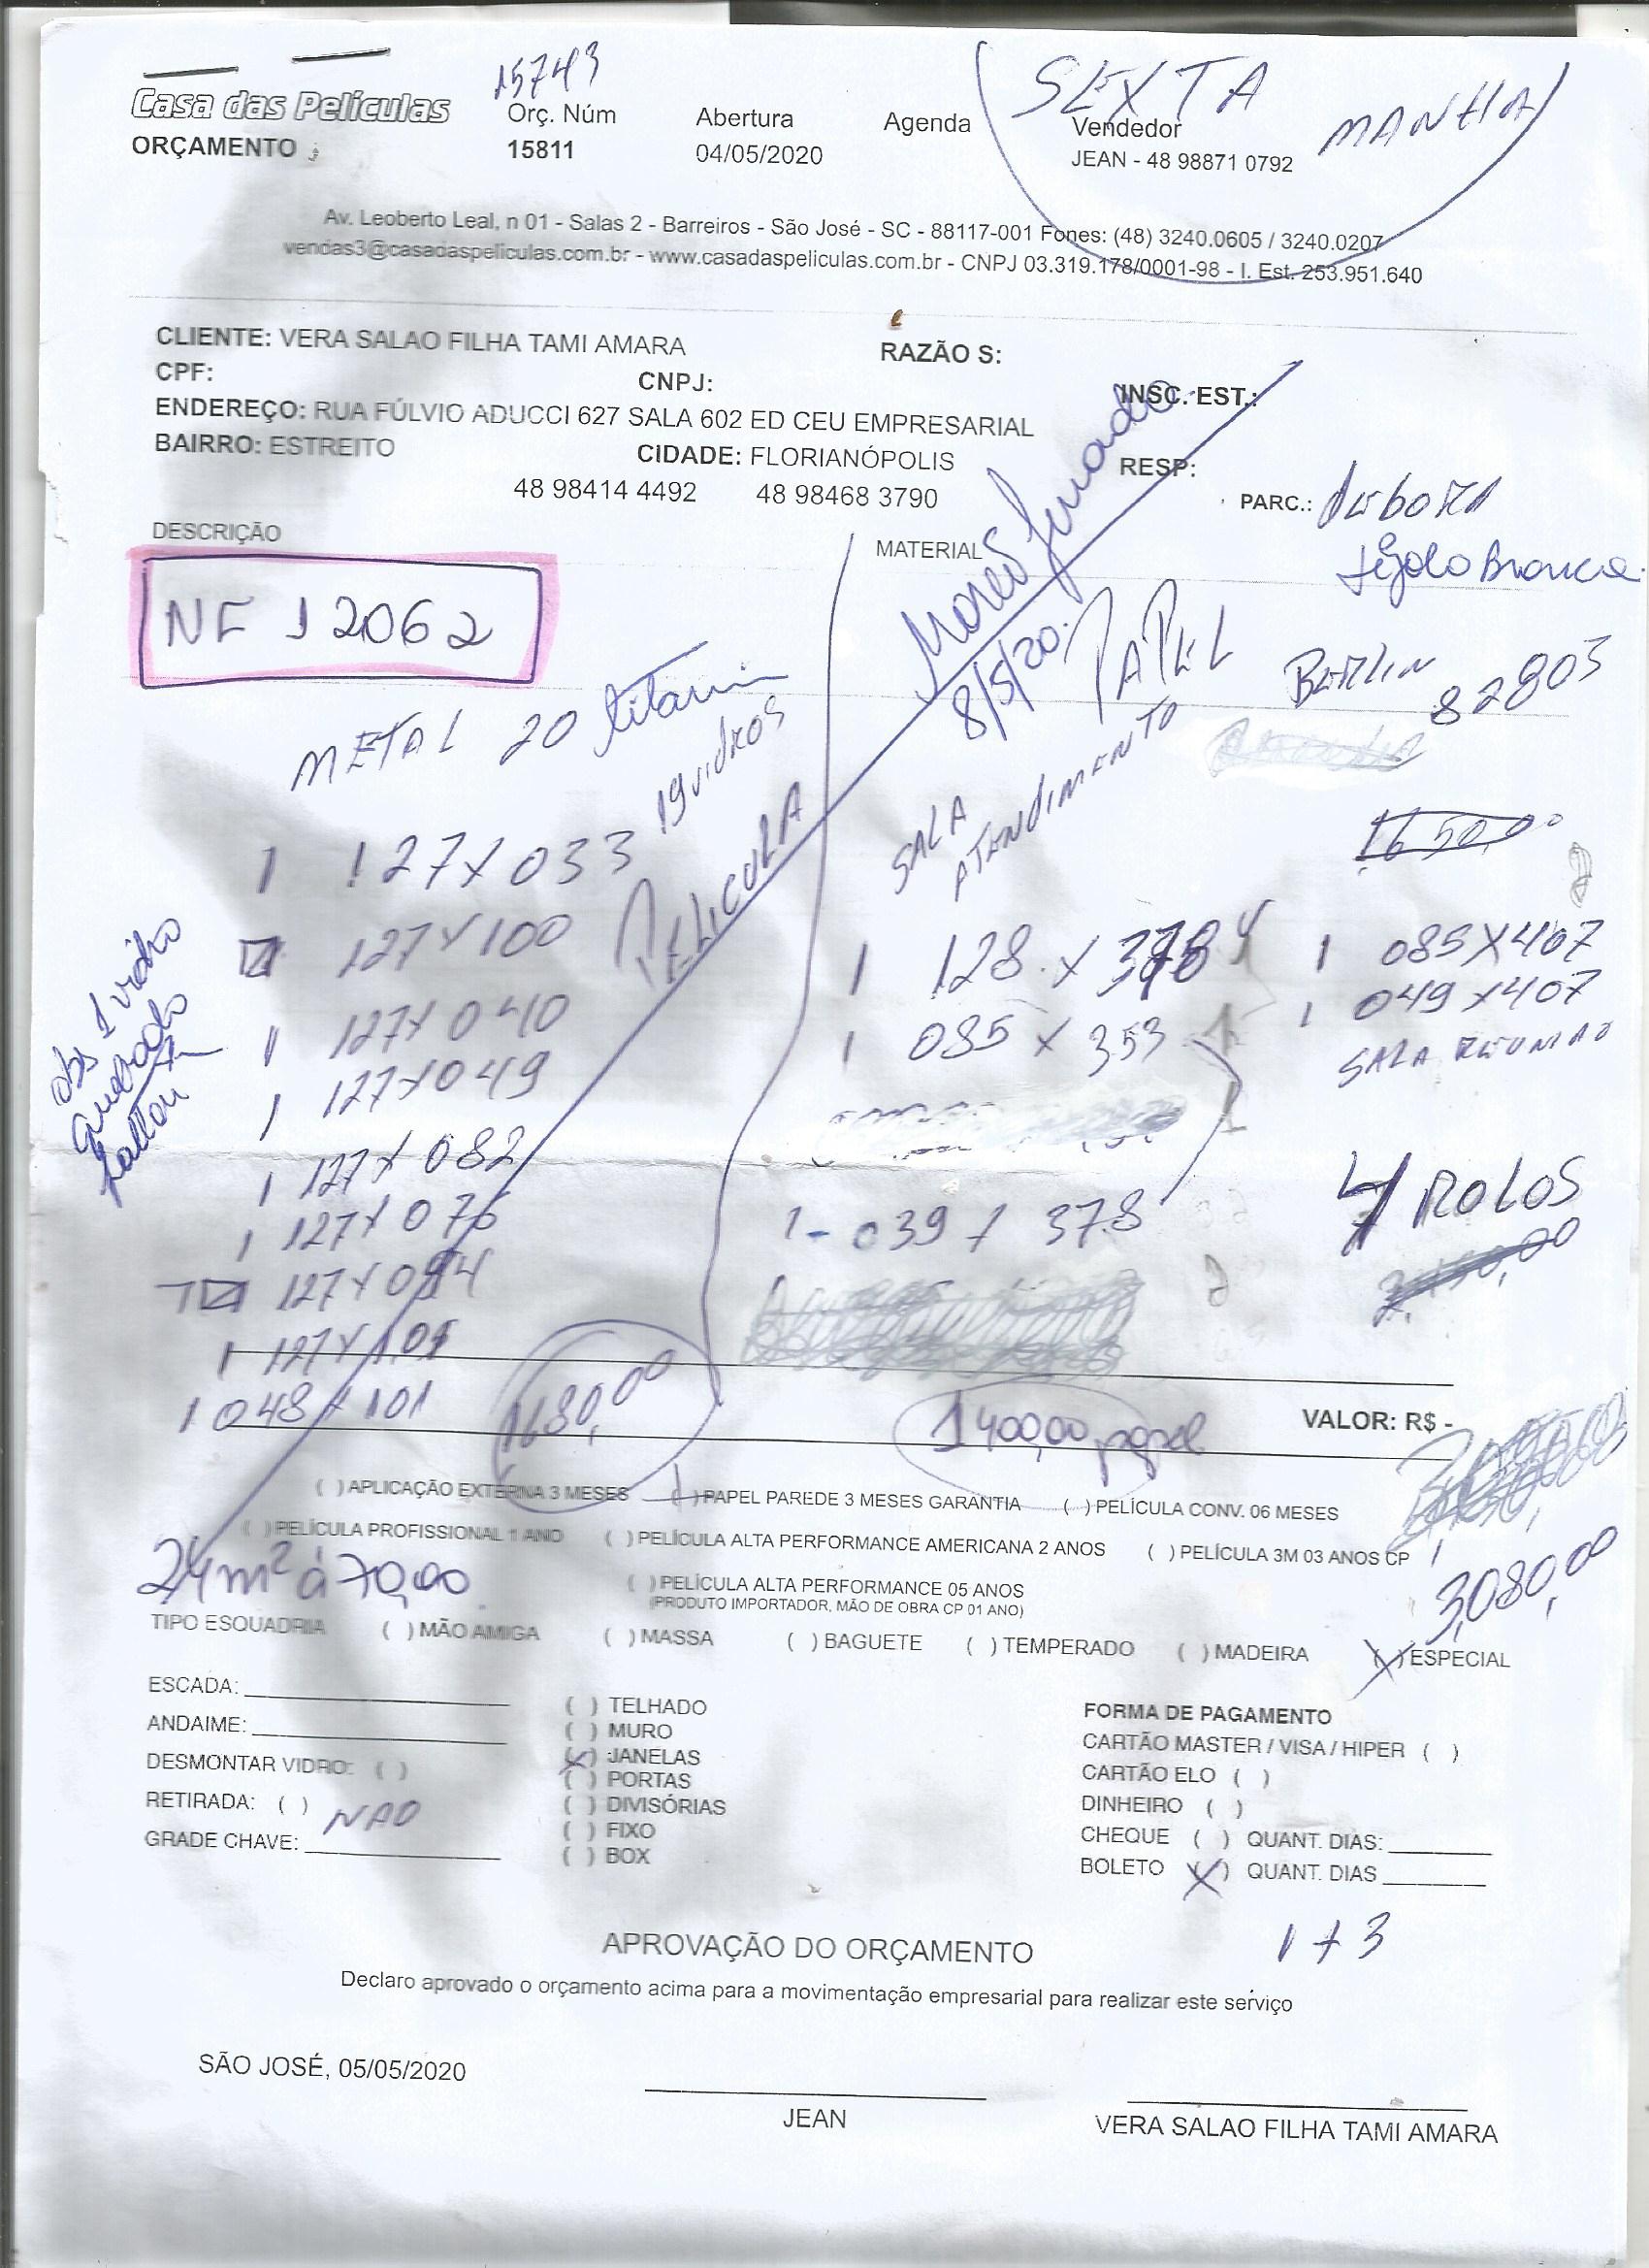 15743
SEXTA
MANHA
Casa das Películas
ORÇAMENTO
Orç. Núm
15811
Abertura
04/05/2020
Agenda
Vendedor
JEAN - 48 98871 0792
Av. Leoberto Leal, n 01 - Salas 2 - Barreiros - São José - SC - 88117-001 Fones: (48) 3240.0605 / 3240.0207
vendas3@casadaspeliculas.com.br - www.casadaspeliculas.com.br - CNPJ 03.319.178/0001-98 - I. Est. 253.951.640
CLIENTE: VERA SALAO FILHA TAMI AMARA
RAZÃO S:
CPF:
CNPJ:
INSC. EST.:
ENDEREÇO: RUA FÚLVIO ADUCCI 627 SALA 602 ED CEU EMPRESARIAL
BAIRRO: ESTREITO
CIDADE: FLORIANÓPOLIS
RESP:
48 98414 4492 48 98468 3790
PARC.: Debora
DESCRIÇÃO
MATERIAL
Tijolo Branco
NF 12062
8/5/20
PAPEL
BERLIN 82803
METAL 20 titanium
19 vidros
PELICULA
SALA
ATENDIMENTO
1650,00
1 127x033
127x100
1 127x040
1 127x049
1 127x082
1 127x076
127x094
1 127x101
1 048x101
obs 1 vidro
quebrado
faltou
1 128 x 378
1 085 x 353
1 - 039 x 378
1 085x407
1 049x407
SALA REUNIAO
4 ROLOS
1680,00
1400,00 papel
VALOR: R$ -
( ) APLICAÇÃO EXTERNA 3 MESES ( ) PAPEL PAREDE 3 MESES GARANTIA ( ) PELÍCULA CONV. 06 MESES
( ) PELÍCULA PROFISSIONAL 1 ANO ( ) PELÍCULA ALTA PERFORMANCE AMERICANA 2 ANOS ( ) PELÍCULA 3M 03 ANOS CP
24m² á 70,00
( ) PELÍCULA ALTA PERFORMANCE 05 ANOS
(PRODUTO IMPORTADOR, MÃO DE OBRA CP 01 ANO)
3,080,00
TIPO ESQUADRIA ( ) MÃO AMIGA ( ) MASSA ( ) BAGUETE ( ) TEMPERADO ( ) MADEIRA (X) ESPECIAL
ESCADA:
ANDAIME:
DESMONTAR VIDRO: ( )
RETIRADA: ( ) NAO
GRADE CHAVE:
( ) TELHADO
( ) MURO
(X) JANELAS
( ) PORTAS
( ) DIVISÓRIAS
( ) FIXO
( ) BOX
FORMA DE PAGAMENTO
CARTÃO MASTER / VISA / HIPER ( )
CARTÃO ELO ( )
DINHEIRO ( )
CHEQUE ( ) QUANT. DIAS:
BOLETO (X) QUANT. DIAS
1 + 3
APROVAÇÃO DO ORÇAMENTO
Declaro aprovado o orçamento acima para a movimentação empresarial para realizar este serviço
SÃO JOSÉ, 05/05/2020
JEAN
VERA SALAO FILHA TAMI AMARA